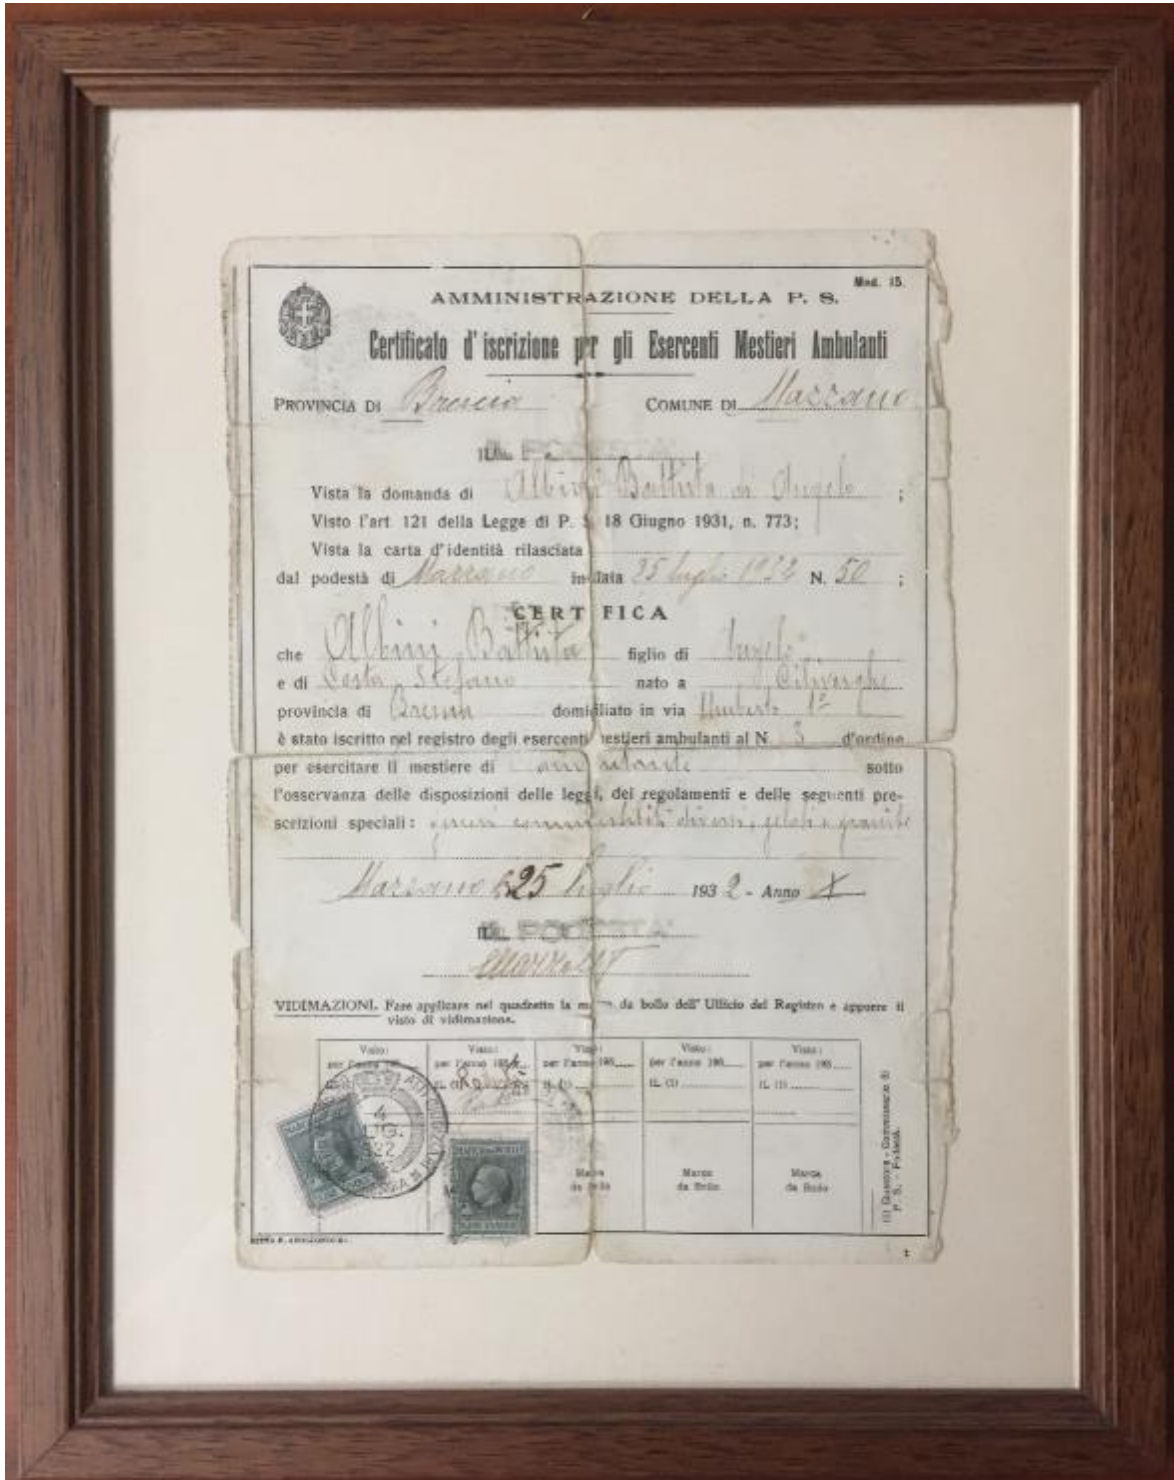 Mod. 15.
AMMINISTRAZIONE DELLA P. S.
Certificato d'iscrizione per gli Esercenti Mestieri Ambulanti
PROVINCIA DI Brescia COMUNE DI Mazzano
IL PODESTA'
Vista la domanda di Albini Battista di Angelo ;
Visto l'art. 121 della Legge di P. S. 18 Giugno 1931, n. 773;
Vista la carta d'identità rilasciata
dal podestà di Mazzano in data 25 luglio 1932 N. 50 ;
CERTIFICA
che Albini Battista figlio di Angelo
e di Costa nato a Ciliverghe
provincia di Brescia domiciliato in via Umberto 1º
è stato iscritto nel registro degli esercenti mestieri ambulanti al N. 3 d'ordine
per esercitare il mestiere di ambulante sotto
l'osservanza delle disposizioni delle leggi, dei regolamenti e delle seguenti pre-
scrizioni speciali: generi commestibili diversi, gelati e granite
Mazzano 25 luglio 1932 - Anno X
IL PODESTA'
VIDIMAZIONI. Fare applicare nel quadretto la marca da bollo dell'Ufficio del Registro e apporre il
visto di vidimazione.
Visto: Visto: Visto: Visto: Visto:
per l'anno 193 per l'anno 193 per l'anno 193 per l'anno 193 per l'anno 193
IL (1) IL (1) IL (1) IL (1)
4
Marca da Bollo
Marca da Bollo
Marca da Bollo
(1) Questore - Commissario di
P. S. - Podestà.